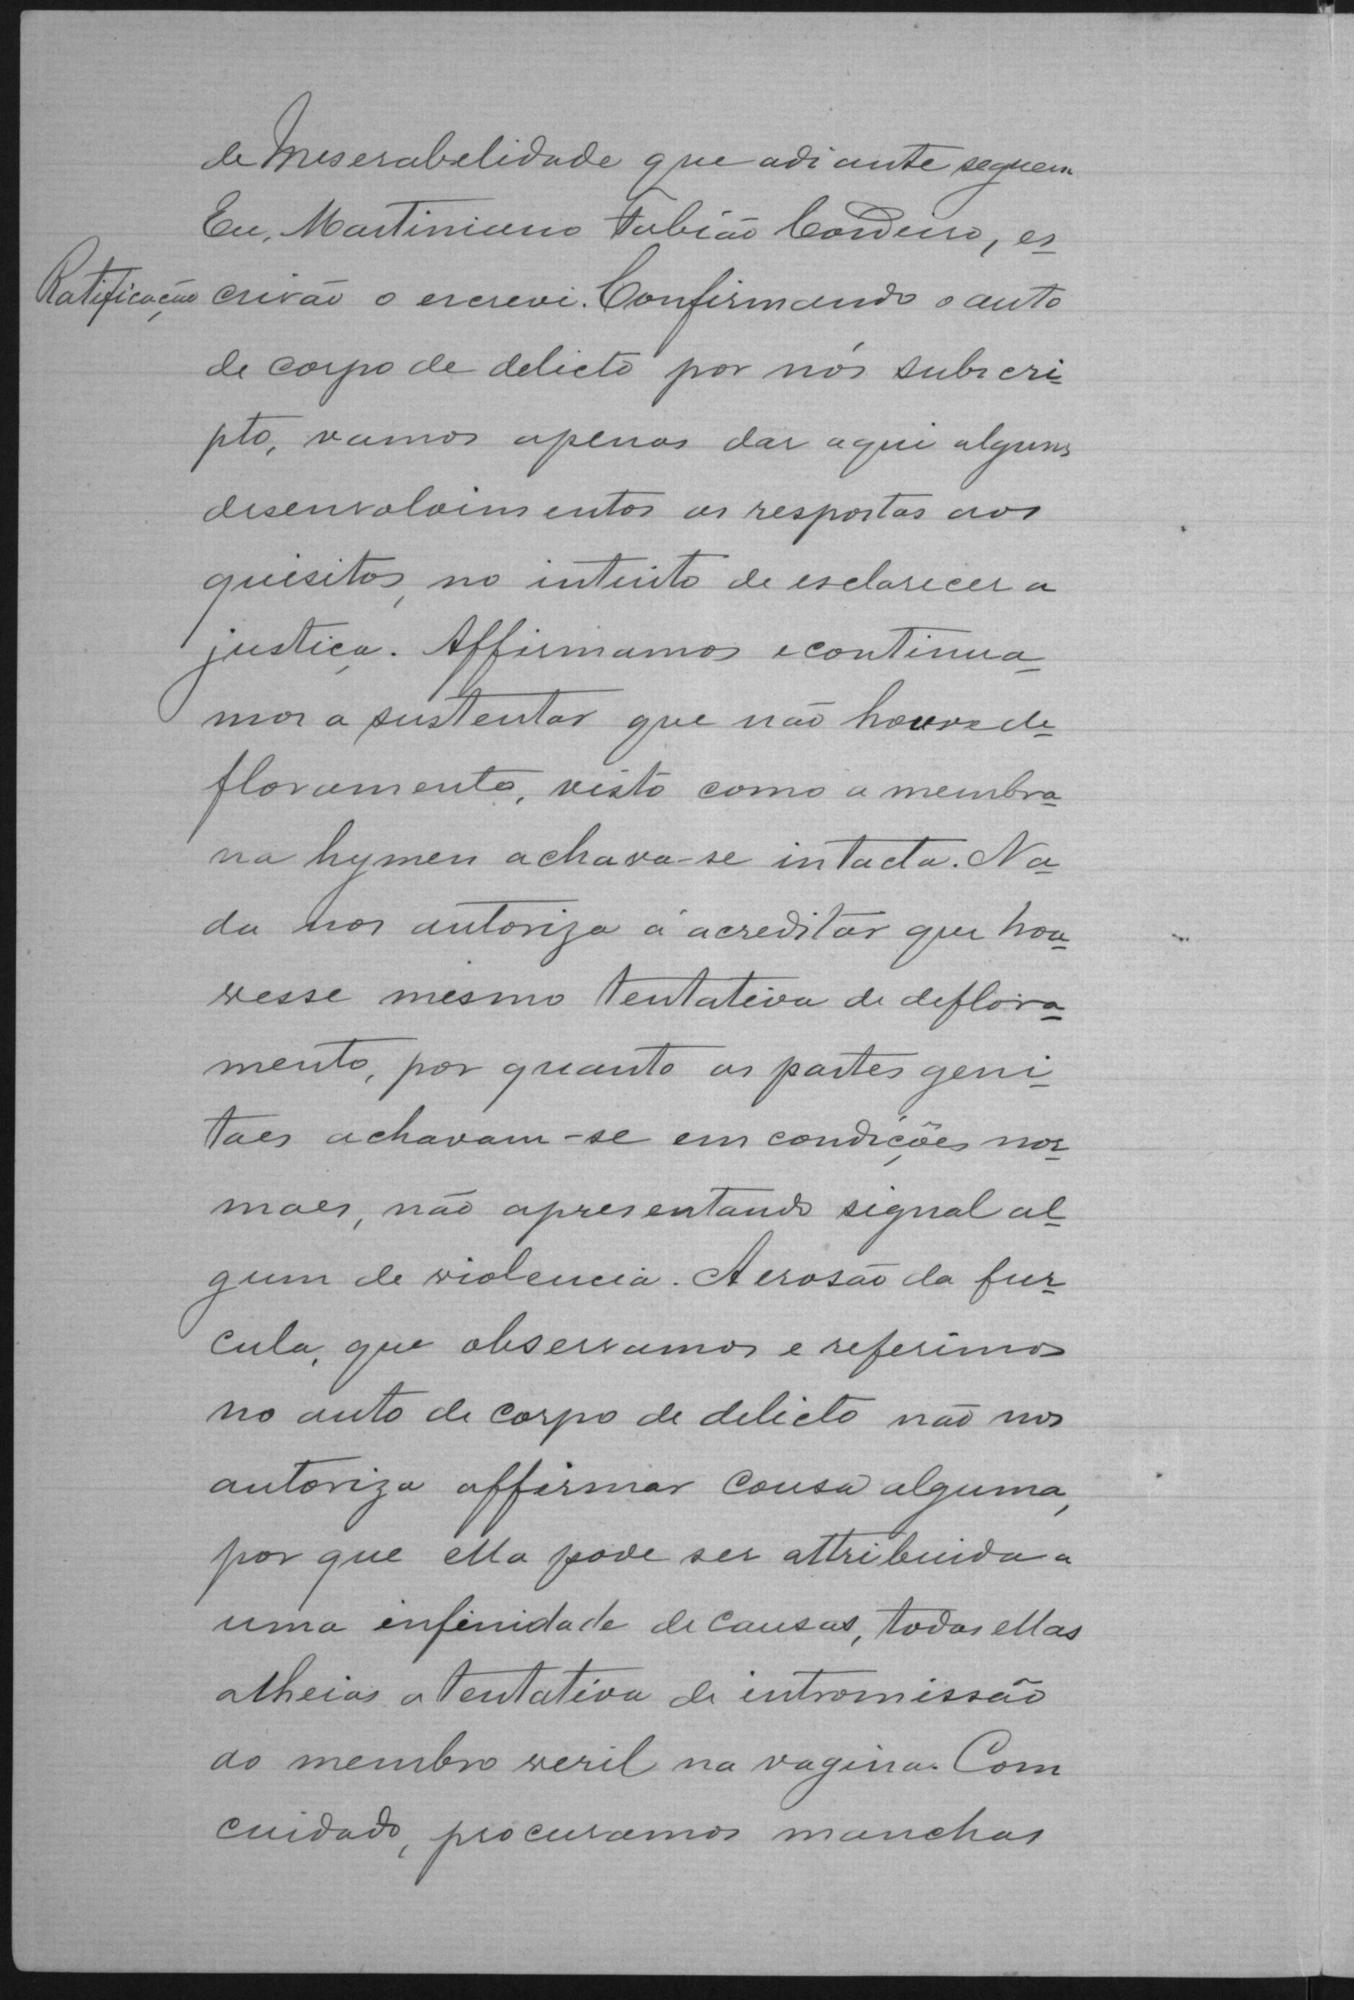 de Meserabelidade que adiante seguem
Eu, Martiniano Fabião Cordeiro, es
Ratificação
crivão o escrevi. Confirmando o auto
de corpo de delicto por nós subscri
pto, vamos apenas dar aqui alguns
desenvolvimentos as respostas aos
quisitos, no intuito de esclarecer a
justiça. Affirmamos e continua
mos a sustentar que não houve de
floramento, visto como a membra
na hymen achava-se intacta. Na
da nos autoriza á acreditar que hou
vesse mesmo tentativa de deflora
mento, por quanto as partes geni
taes achavam-se em condições nor
maes, não apresentando signal al
gum de violencia. A erosão da fur
cula, que observamos e referimos
no auto de corpo de delicto não nos
autoriza affirmar cousa alguma,
por que ella pode ser attribuida a
uma infinidade de causas, todas ellas
alheias a tentativa de intromissão
do membro veril na vagina. Com
cuidado, procuramos manchas